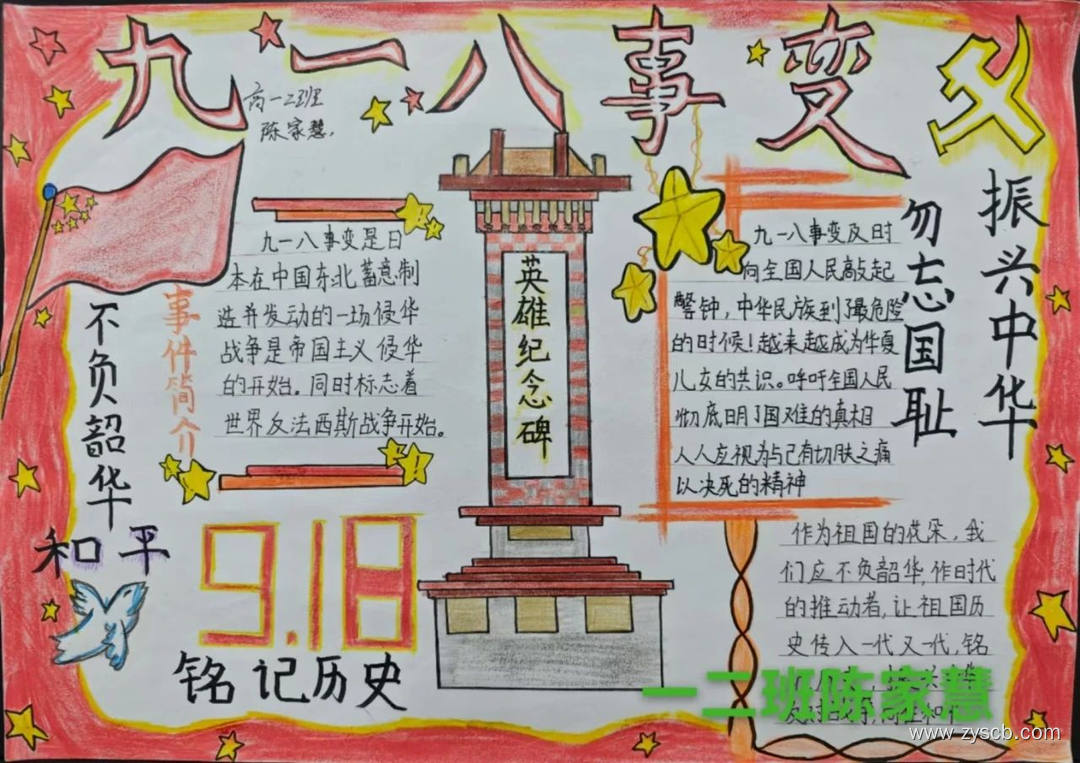 九一八事变
高一二班
陈家慧.
事件简介
九一八事变是日
本在中国东北蓄意制
造并发动的一场侵华
战争是帝国主义侵华
的开始。同时标志着
世界反法西斯战争开始。
英雄纪念碑
九一八事变及时
向全国人民敲起
警钟,中华民族到了最危险
的时候!越来越成为华夏
儿女的共识。呼吁全国人民
彻底明了国难的真相
人人应视为与己有切肤之痛
以决死的精神
勿忘国耻
振兴中华
不负韶华
和平
9.18
铭记历史
作为祖国的花朵,我
们应不负韶华,作时代
的推动者,让祖国历
史传入一代又一代,铭
一二班陈家慧
www.zyscb.com